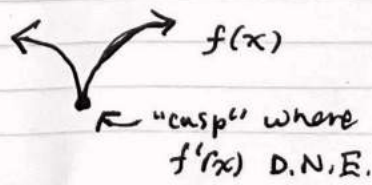 f(x)
"cusp" where
f'(x) D.N.E.